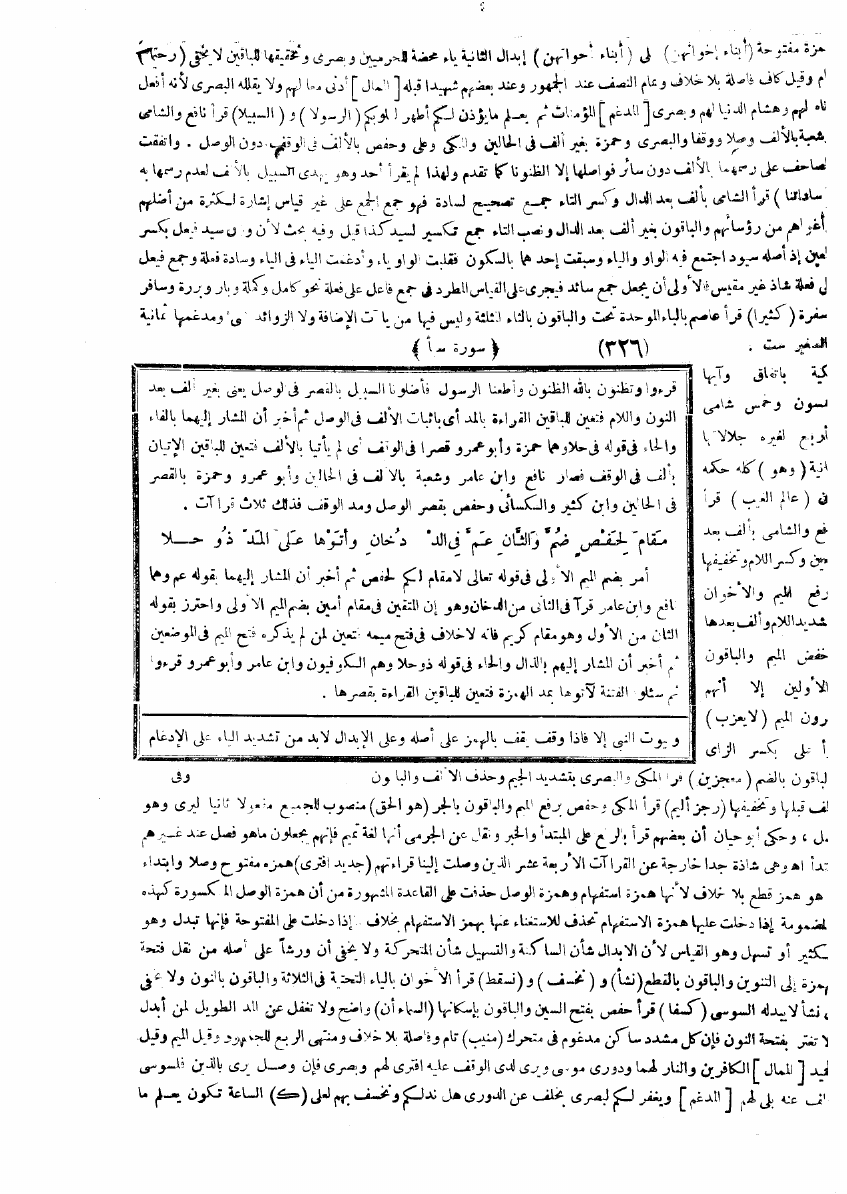 همزة مفتوحة (أبناء إخوانهن) لى (أبناء أخواتهن) إبدال الثانية ياء محضة للحرميين وبصرى وتحقيقها للباقين لا يخفى (رحيما)
ام وقيل كاف فاصلة بلا خلاف وتمام النصف عند الجمهور وعند بعضهم شهيدا قبله [المال] أدنى معا لهم ولا يقلله البصرى لأنه أفعل
ناه لهم وهشام الدنيا لهم وبصرى [المدغم] المؤمنات ثم يعلم ما يؤذن لكم أطهر لقلوبكم (الرسولا) و (السبيلا) قرأ نافع والشامى
شعبة بالألف وصلا ووقفا والبصرى وحمزة بغير ألف فى الحالين والمكى وعلى وحفص بالألف فى الوقف دون الوصل . واتفقت
لصاحف على رسمهما بالألف دون سائر فواصلها إلا الظنونا كما تقدم ولهذا لم يقرأ أحد وهو يهدى السبيل بالألف لعدم رسمها به
ساداتنا) قرأ الشامى بألف بعد الدال وكسر التاء جمع تصحيح لسادة فهو جمع الجمع على غير قياس إشارة لكثرة من أضلهم
أغواهم من رؤسائهم والباقون بغير ألف بعد الدال ونصب التاء جمع تكسير لسيد كذا قيل وفيه بحث لأن وزن سيد فيعل بكسر
لعين إذ أصله سيود اجتمع فيه الواو والياء وسبقت إحداهما بالسكون فقلبت الواو ياء وأدغمت الياء فى الياء وسادة فعلة وجمع فيعل
لى فعلة شاذ غير مقيس فالأولى أن يجعل جمع سائد فيجرى على القياس المطرد فى جمع فاعل على فعلة نحو كامل وكملة وبار وبررة وسافر
سفرة (كثيرا) قرأ عاصم بالباء الموحدة تحت والباقون بالثاء المثلثة وليس فيها من ياآت الإضافة ولا الزوائد شىء ومدغمها ثمانية
الصغير ست . (٣٢٦) ﴿ سورة سبأ ﴾
كية باتفاق وآيها
مسون وخمس شامى
أربع لغيره جلالاتها
انية (وهو) كله حكمه
ن (عالم الغيب) قرأ
فع والشامى بألف بعد
عين وكسر اللام وتخفيفها
رفع الميم والأخوان
شديد اللام وألف بعدها
خفض الميم والباقون
الأولين إلا أنهم
رون الميم (لا يعزب)
أ على بكسر الزاى
قرءوا وتظنون بالله الظنون وأطعنا الرسول فأضلونا السبيل بالقصر فى الوصل يعنى بغير ألف بعد
النون واللام فتعين للباقين القراءة بالمد أى باثبات الألف فى الوصل ثم أخبر أن المشار إليهما بالفاء
والحاء فى قوله فى حلا وهما حمزة وأبو عمرو قصرا فى الوقف أى لم يأتيا بالألف فتعين للباقين الإتيان
بألف فى الوقف فصار نافع وابن عامر وشعبة بالألف فى الحالين وأبو عمرو وحمزة بالقصر
فى الحالين وابن كثير والكسائى وحفص بقصر الوصل ومد الوقف فذلك ثلاث قراآت .
مقام لحفص ضُمَّ والثَّانِ عمَّ فى الد دُخانِ وآتَوْها على المدّ ذُو حلا
أمر بضم الميم الأولى فى قوله تعالى لا مقام لكم لحفص ثم أخبر أن المشار إليهما بقوله عم وهما
نافع وابن عامر قرآ فى الثانى من الدخان وهو إن المتقين فى مقام أمين بضم الميم الأولى واحترز بقوله
الثان من الأول وهو مقام كريم فانه لا خلاف فى فتح ميمه فتعين لمن لم يذكره فتح الميم فى الموضعين
ثم أخبر أن المشار إليهم بالذال والحاء فى قوله ذو حلا وهم الكوفيون وابن عامر وأبو عمرو قرءوا
ثم سئلوا الفتنة لآتوها بمد الهمزة فتعين للباقين القراءة بقصرها .
وبيوت النبى إلا فاذا وقف يقف بالهمز على أصله وعلى الإبدال لابد من تشديد الياء على الإدغام
لباقون بالضم (معجزين) قرأ المكى والبصرى بتشديد الجيم وحذف الألف والباقون وفى
لف قبلها وتخفيفها (رجز أليم) قرأ المكى وحفص برفع الميم والباقون بالجر (هو الحق) منصوب للجميع مفعولا ثانيا ليرى وهو
صل ، وحكى أبو حيان أن بعضهم قرأ بالرفع على المبتدأ والخبر ونقل عن الجرمى أنها لغة تميم فإنهم يجعلون ما هو فصل عند غيرهم
تدأ اه وهى شاذة جدا خارجة عن القراآت الأربعة عشر الذين وصلت إلينا قراءتهم (جديد افترى) همزه مفتوح وصلا وابتداء
هو همز قطع بلا خلاف لأنها همزة استفهام وهمزة الوصل حذفت على القاعدة المشهورة من أن همزة الوصل المكسورة كهذه
لمضمومة إذا دخلت عليها همزة الاستفهام تحذف للاستغناء عنها بهمز الاستفهام بخلاف إذا دخلت على المفتوحة فإنها تبدل وهو
لكثير أو تسهل وهو القياس لأن الابدال شأن الساكنة والتسهيل شأن المتحركة ولا يخفى أن ورشا على أصله من نقل فتحة
همزة إلى التنوين والباقون بالقطع (نشأ) و (نخسف) و (نسقط) قرأ الأخوان بالياء التحتية فى الثلاثة والباقون بالنون ولا يخفى
ن نشأ لا يبدله السوسى (كسفا) قرأ حفص بفتح السين والباقون بإسكانها (السماء أن) واضح ولا تغفل عن المد الطويل لمن أبدل
لا تغتر بفتحة النون فإن كل مشدد ساكن مدغوم فى متحرك (منيب) تام وفاصلة بلا خلاف ومنتهى الربع للجمهور وقيل الميم وقيل
لحيد [المال] الكافرين والنار لهما ودورى موسى ويرى لدى الوقف عليه افترى لهم وبصرى فإن وصل يرى بالذين فلسوسى
لف عنه بلى لهم [المدغم] ويغفر لكم لبصرى بخلف عن الدورى هل ندلكم ونخسف بهم لعلى (ك) الساعة تكون يعلم ما